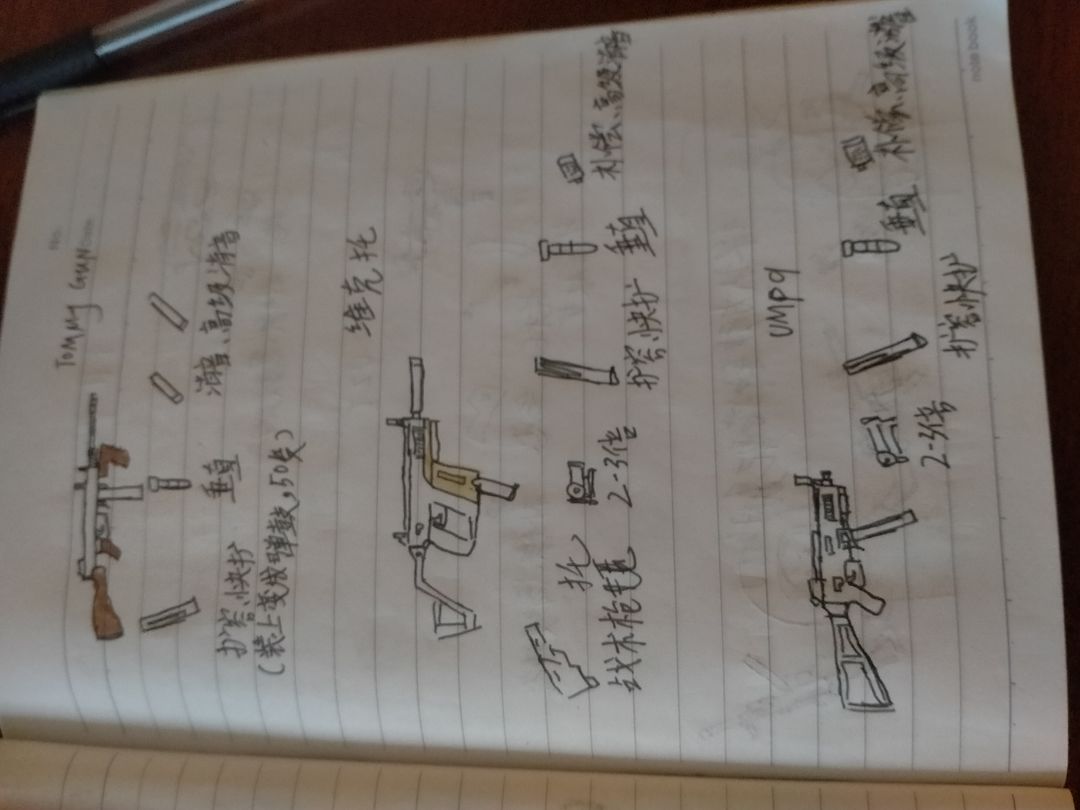 TOMMY GUN
扩容、快扩
垂直
消音、高级消音
(装上变成弹鼓。50发)
维克托
托
战术枪托
2-3倍
扩容、快扩
垂直
补偿、高级消音
UMP9
2-3倍
扩容、快扩
垂直
补偿、高级消音
note book